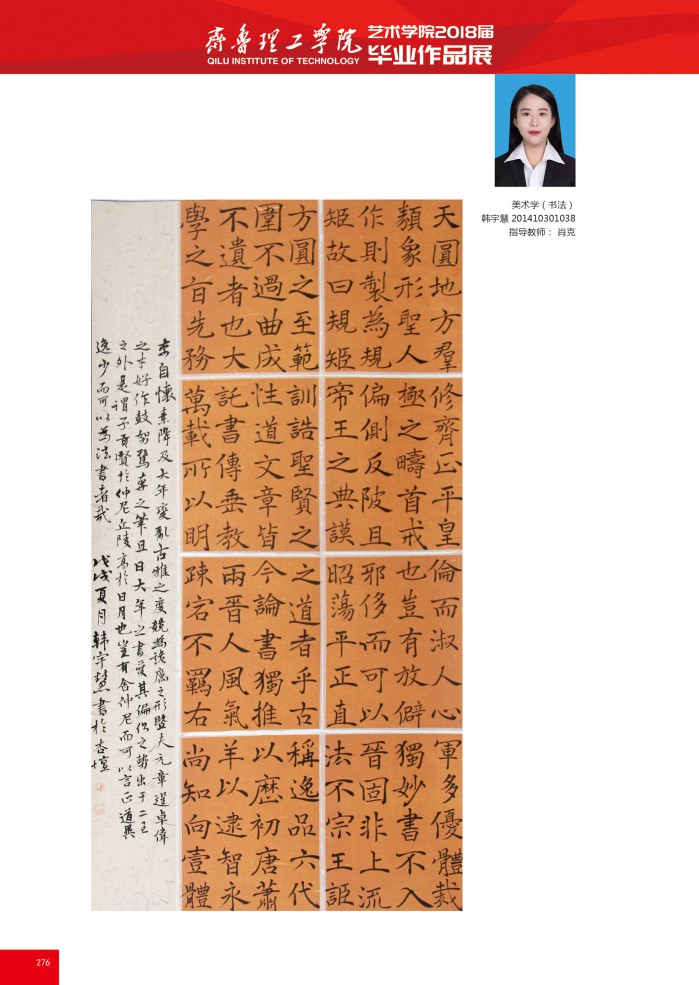 齊魯理工學院
QILU INSTITUTE OF TECHNOLOGY
艺术学院2018届
毕业作品展
美术学（书法）
韩宇慧 201410301038
指导教师： 肖克
天圓地方羣
類象形聖人
作則製為規
矩故曰規矩
方圓之至範
圍不過曲成
不遺者也大
學之旨先務
修齊正平皇
極之疇首戒
偏側反陂且
帝王之典謨
訓誥聖賢之
性道文章皆
託書傳垂教
萬載所以明
倫而淑人心
也豈有放僻
邪侈而可以
昭蕩平正直
之道者乎古
今論書獨推
兩晉人風氣
疎宕不羈右
軍多優體裁
獨妙書不入
晉固非上流
法不宗王詎
稱逸品六代
以歷初唐蕭
羊以逮智永
尚知向壹體
自懷素降及大年變亂古雅之度競為之形暨夫元章逞卓偉
之才好作鼓努驚奔之筆且曰大年之書愛其偏側之勢出于二王
之外是謂子貢賢於仲尼丘陵高於日月也豈有舍仲尼而可以言正道異
逸少而可以為法書者哉 戊戌夏月韓宇慧書於杏壇
276